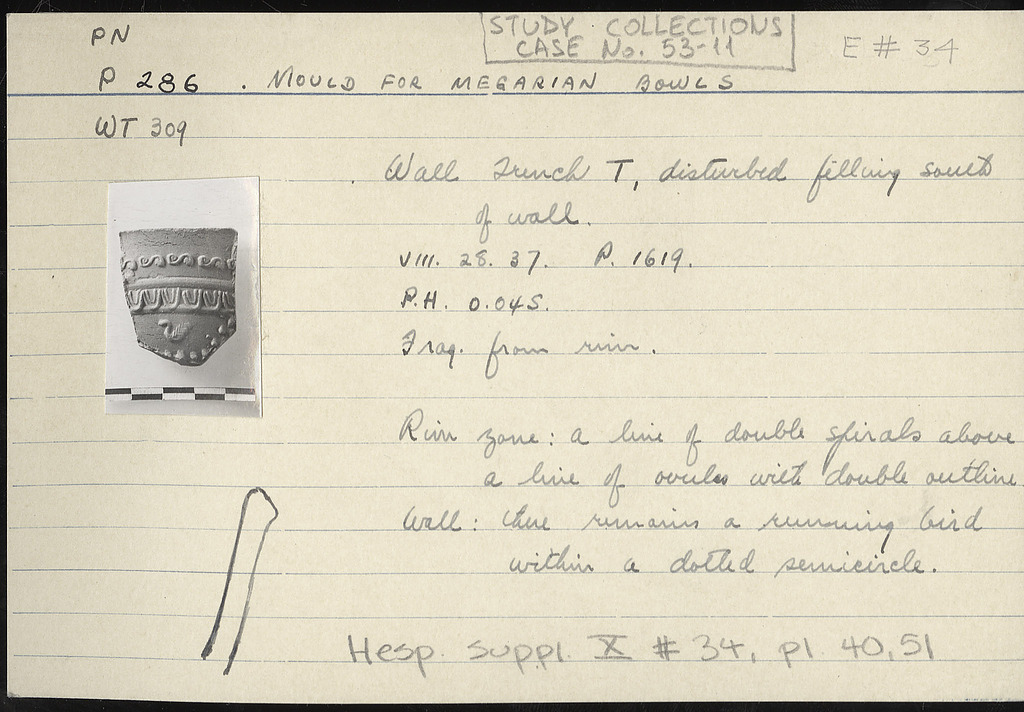 PN
STUDY COLLECTIONS
CASE No. 53-11
E # 34
P 286 . MOULD FOR MEGARIAN BOWLS
WT 309
Wall Trench T, disturbed filling south
of wall.
VIII. 28. 37. P. 1619.
P.H. 0.045.
Frag. from rim.
Rim zone: a line of double spirals above
a line of ovules with double outline.
Wall: there remains a running bird
within a dotted semicircle.
Hesp. Suppl. X # 34, pl. 40, 51